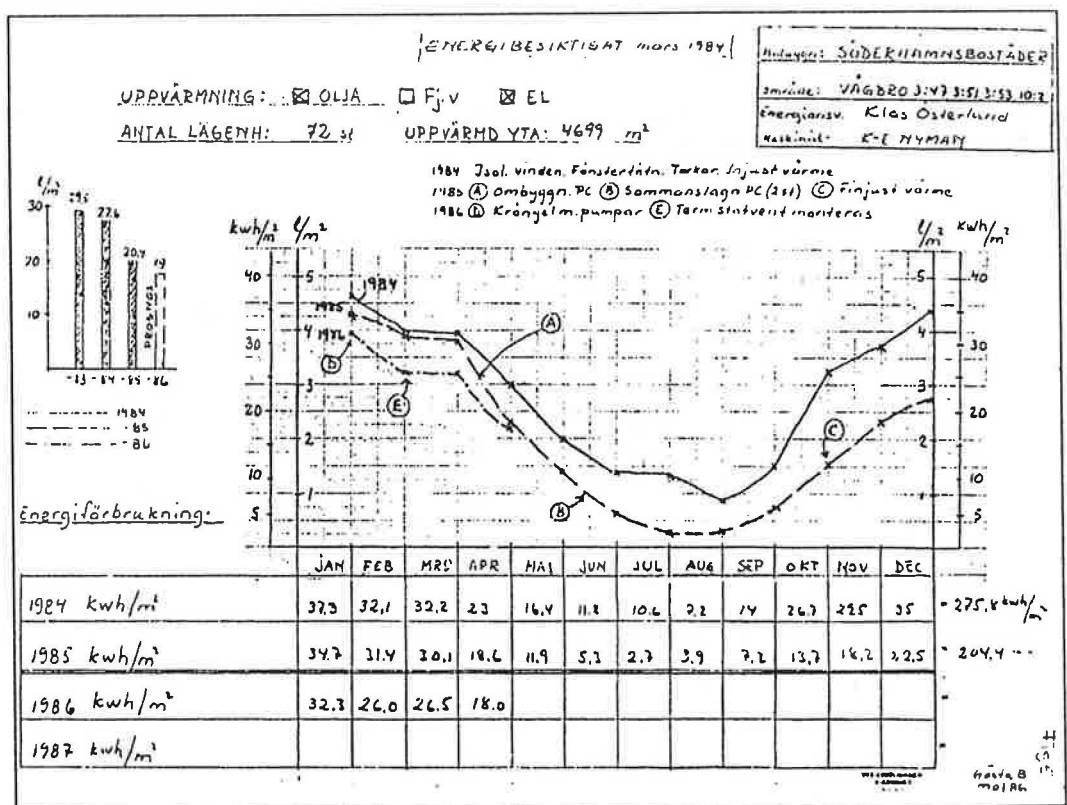 ENERGIBESIKTIGAT mars 1984
SÖDERHAMNSBOSTÄDER
område: VÅGBRO 3:47 3:51 3:53 10:2
Energiansv. Klas Österlund
Maskinist: K-E NYMAN
UPPVÄRMNING: ☒ OLJA ☐ Fj.V ☒ EL
ANTAL LÄGENH: 72 st UPPVÄRMD YTA: 4699 m²
1984 Isol. vinden. Fönstertätn. Injust värme
1985 Ⓐ Ombyggn. PC Ⓑ Sammanslagn PC (2st) Ⓒ Finjust värme
1986 Ⓓ Krångel m. pumpar Ⓔ Termostatvent monteras
l/m²
30
20
10
27,6
20,4
19
PROGNOS
-83 -84 -85 -86
1984
-85
-86
kwh/m² l/m²
l/m² kwh/m²
40 5
4
30
3
20
2
10
1
5
5 40
4
30
3
20
2
10
1
5
1984
1985
1986
A
B
C
D
E
Energiförbrukning:
JAN FEB MRS APR MAJ JUN JUL AUG SEP OKT NOV DEC
1984 kwh/m² 37,3 32,1 32,2 23 16,4 11,2 10,6 7,2 14 26,7 29,5 35 = 275,8 kwh/m²
1985 kwh/m² 34,7 31,4 30,1 18,6 11,9 5,3 2,7 3,9 7,2 13,7 18,2 22,5 = 204,4
1986 kwh/m² 32,3 26,0 26,5 18.0
1987 kwh/m²
Gösta B